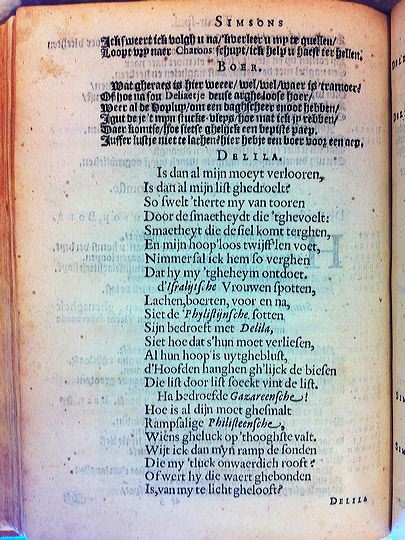 SIMSONS
Ick sweert ick volgh u na/ kverleer u my te quellen/
Loopt vry naer Charons schupt/ ick help u haest ter hellen.
BOER.
Wat gheraes is hier weeer/ wel/ wel/ waer is
Of hoe na sou deuse argheloose hoer/
Weer al de om een baghscheer enoot hebben/
Igut de je 't mijn stucke-vleys/ hoe mat ick jy rebben/
Daer komtse/ soe siets ghelijck een vepste paep.
Juffer lustje niet te lachen? hier hebje een boer voor een aep.
DELILA.
Is dan al mijn moeyt verlooren,
Is dan al mijn list ghedroelt?
So swelt 'therte my van tooren
Door de smaetheydt die 'tghevoelt:
Smaetheyt die de siel komt terghen,
En mijn hoop'loos twijff'len voet,
Nimmer sal ick hem so verghen
Dat hy my 'tgheheym ontdoet.
d'Israljtsche Vrouwen spotten,
Lachen, boerten, voor en na,
Siet de 'Phylistijnsche sotten
Sijn bedroeft met Delila,
Siet hoe dat s'hun moet verliesen,
Al hun hoop is uytgheblust,
d'Hoofden hanghen gh'lijck de biesen
Die list door list soeckt vint de list.
Ha bedroefde Gazareensche!
Hoe is al dijn moet ghesmalt
Rampsalige Philisteensche,
Wiens gheluck op 'thooghste valt.
Wijt ick dan mijn ramp de sonden
Die my 'tluck onwaerdich rooft?
Of wert hy die waert ghebonden
Is, van my te licht ghelooft?
DELILA